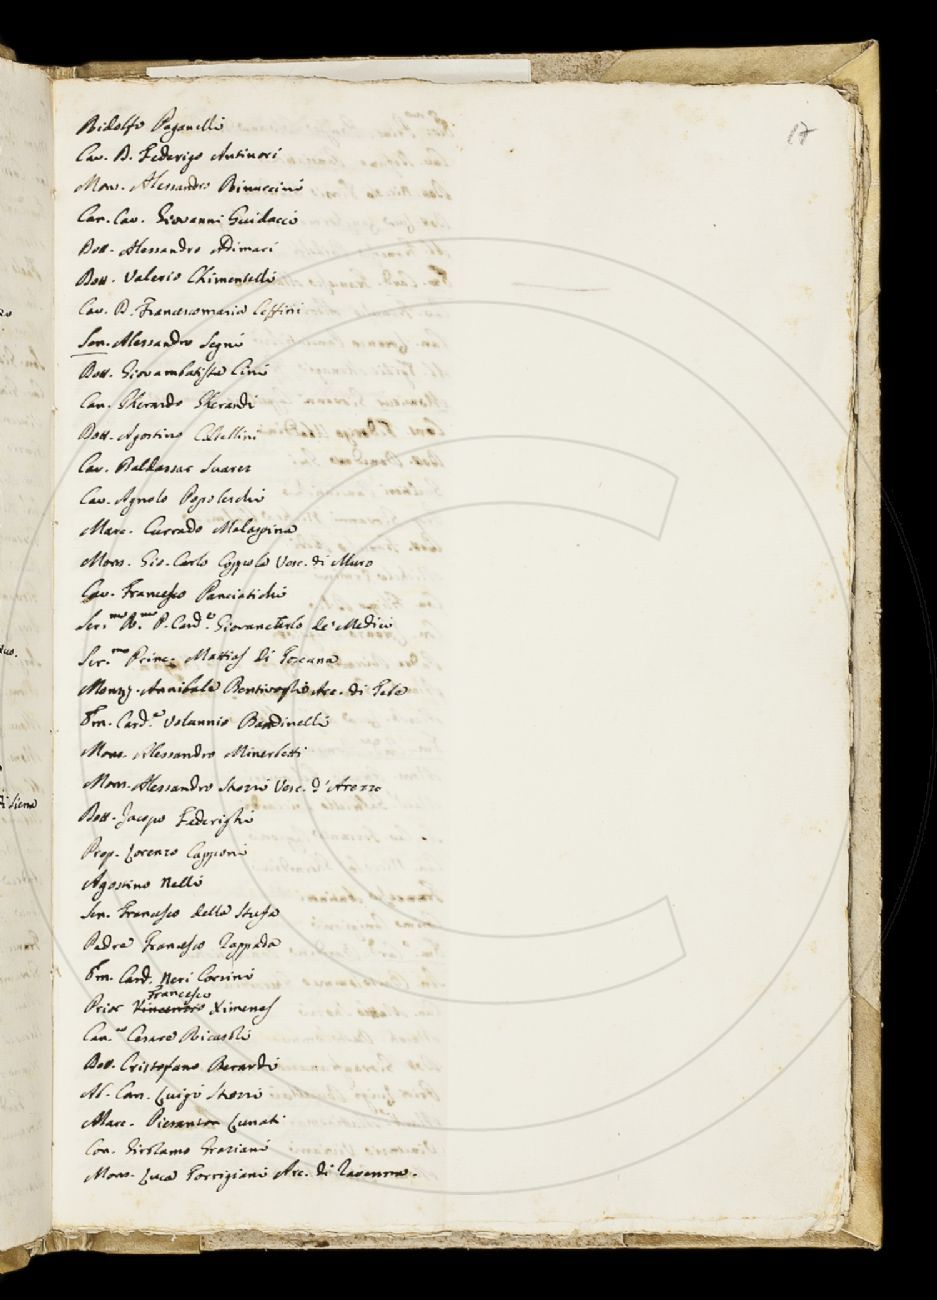 17
Ridolfo Paganelli
Cav. B. Federigo Antinori
Mons. Alessandro Rinuccini
Can. Cav. Giovanni Guidacci
Dott. Alessandro Adimari
Dott. Valerio Chimentelli
Cav. B. Francesco maria Ceffini
Sen. Alessandro Segni
Dott. Giovambatista Cini
Can. Gherardo Gherardi
Dott. Agostino Coltellini
Cav. Baldassar Suarez
Cav. Agnolo Popoleschi
Marc. Currado Malaspina
Mons. Gio. Carlo Coppola Vesc. di Muro
Cav. Francesco Panciatichi
Ser.mo R.mo P. Card.e Giovancarlo de' Medici
Ser.mo Princ. Mattias di Toscana
Monsg. Annibale Bentivogli Arc. di Tebe
Em. Card.e Volunnio Bandinelli
Mons. Alessandro Minerbetti
Mons. Alessandro Strozzi Vesc. d'Arezzo
Dott. Jacopo Federighi
Prop. Lorenzo Capponi
Agostino Nelli
Sen. Francesco della Stufa
Padre Francesco Zappada
Em. Card. Neri Corsini
Francesco
Prior Vincenzio Ximenes
Can.co Cesare Ricasoli
Dott. Cristofano Berardi
Ab. Can. Luigi Strozzi
Marc. Pieranton Lunati
Con. Girolamo Graziani
Mons. Luca Torrigiani Arc. di Ravenna.
di Siena